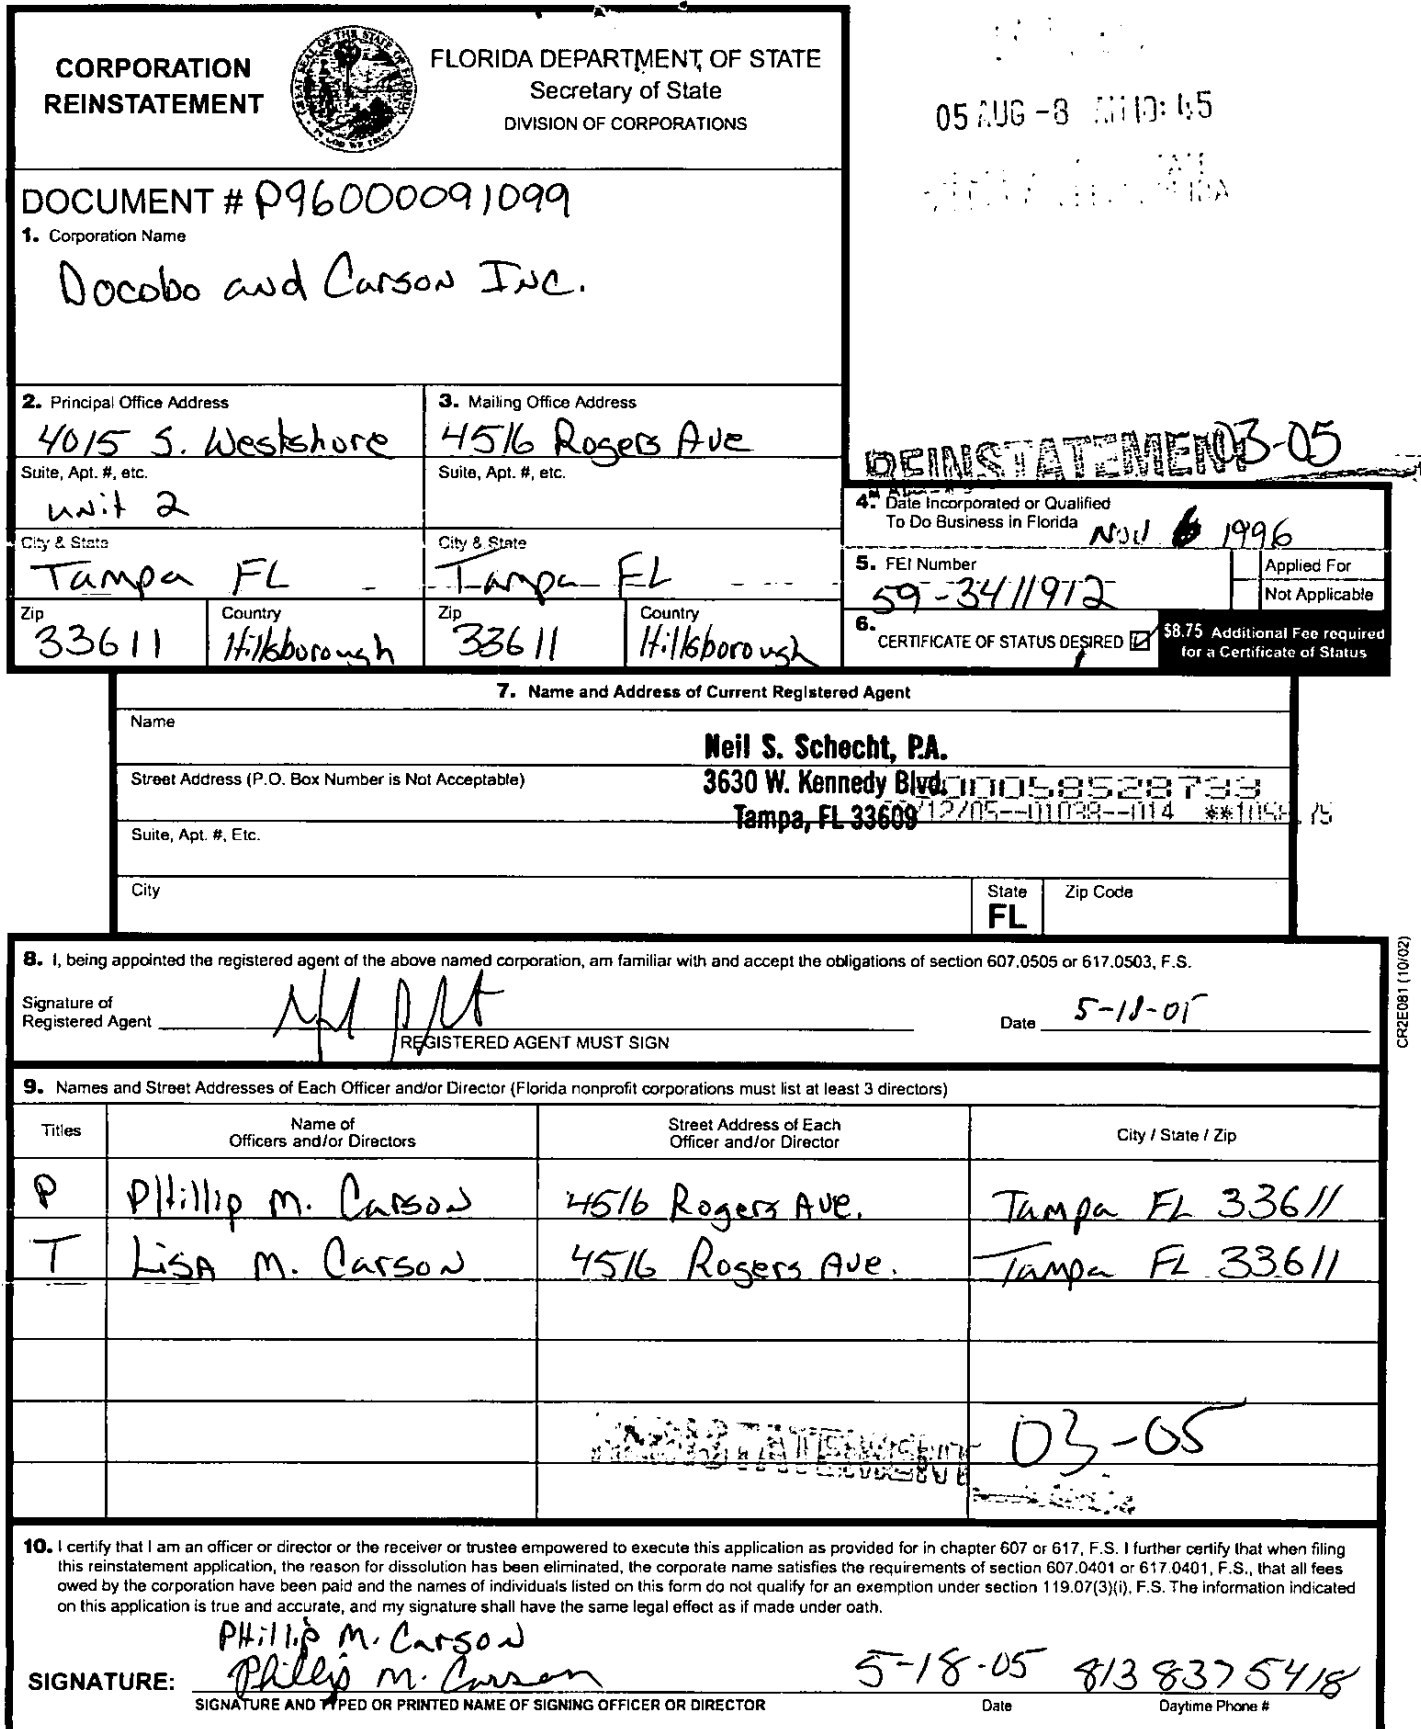 CORPORATION
REINSTATEMENT
FLORIDA DEPARTMENT OF STATE
Secretary of State
DIVISION OF CORPORATIONS
05 AUG -8 AM 10:45
DOCUMENT # P96000091099
1. Corporation Name
Docobo and Carson Inc.
2. Principal Office Address
4015 S. Westshore
Suite, Apt. #, etc.
unit 2
City & State
Tampa FL
Zip
33611
Country
Hillsborough
3. Mailing Office Address
4516 Rogers Ave
Suite, Apt. #, etc.
City & State
Tampa FL
Zip
33611
Country
Hillsborough
REINSTATEMENT 03-05
4. Date Incorporated or Qualified
To Do Business in Florida
Nov 6 1996
5. FEI Number
59-3411912
Applied For
Not Applicable
6. CERTIFICATE OF STATUS DESIRED
$8.75 Additional Fee required
for a Certificate of Status
7. Name and Address of Current Registered Agent
Name
Neil S. Schecht, P.A.
Street Address (P.O. Box Number is Not Acceptable)
3630 W. Kennedy Blvd.
Tampa, FL 33609
12/05--01038--014
Suite, Apt. #, Etc.
City
State
FL
Zip Code
8. I, being appointed the registered agent of the above named corporation, am familiar with and accept the obligations of section 607.0505 or 617.0503, F.S.
Signature of
Registered Agent
REGISTERED AGENT MUST SIGN
Date 5-18-05
CR2E081 (10/02)
9. Names and Street Addresses of Each Officer and/or Director (Florida nonprofit corporations must list at least 3 directors)
Titles
Name of
Officers and/or Directors
Street Address of Each
Officer and/or Director
City / State / Zip
P Phillip M. Carson 4516 Rogers Ave. Tampa FL 33611
T Lisa M. Carson 4516 Rogers Ave. Tampa FL 33611
REINSTATEMENT 03-05
10. I certify that I am an officer or director or the receiver or trustee empowered to execute this application as provided for in chapter 607 or 617, F.S. I further certify that when filing
this reinstatement application, the reason for dissolution has been eliminated, the corporate name satisfies the requirements of section 607.0401 or 617.0401, F.S., that all fees
owed by the corporation have been paid and the names of individuals listed on this form do not qualify for an exemption under section 119.07(3)(i), F.S. The information indicated
on this application is true and accurate, and my signature shall have the same legal effect as if made under oath.
Phillip M. Carson
SIGNATURE: Phillip M. Carson 5-18-05 813 837 5418
SIGNATURE AND TYPED OR PRINTED NAME OF SIGNING OFFICER OR DIRECTOR
Date
Daytime Phone #